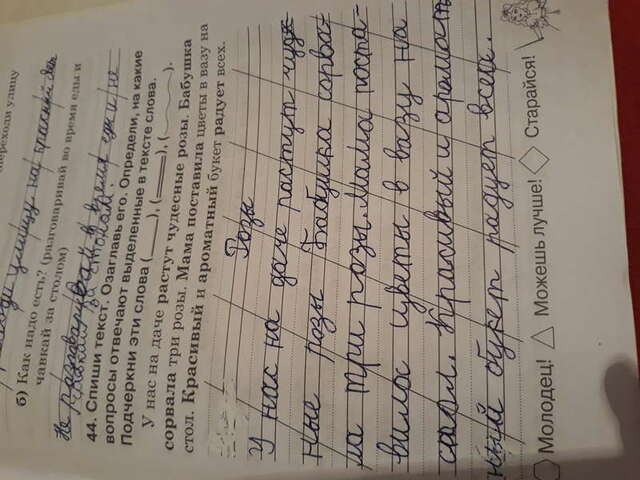 переходи улицу
улицу на красный
б) Как надо есть? (разговаривай во время еды и
чавкай за столом)
Не разговаривай в время еды и не
чавкай за столом.
44. Спиши текст. Озаглавь его. Определи, на какие
вопросы отвечают выделенные в тексте слова.
Подчеркни эти слова (___), (═══), (﹏﹏).
У нас на даче растут чудесные розы. Бабушка
сорвала три розы. Мама поставила цветы в вазу на
стол. Красивый и ароматный букет радует всех.
Розы
У нас на даче растут чудес-
ные розы Бабушка сорва-
ла три розы. Мама поста-
вила цветы в вазу на
стол. Красивый и аромат
ный букет радует всех.
Молодец! Можешь лучше! Старайся!